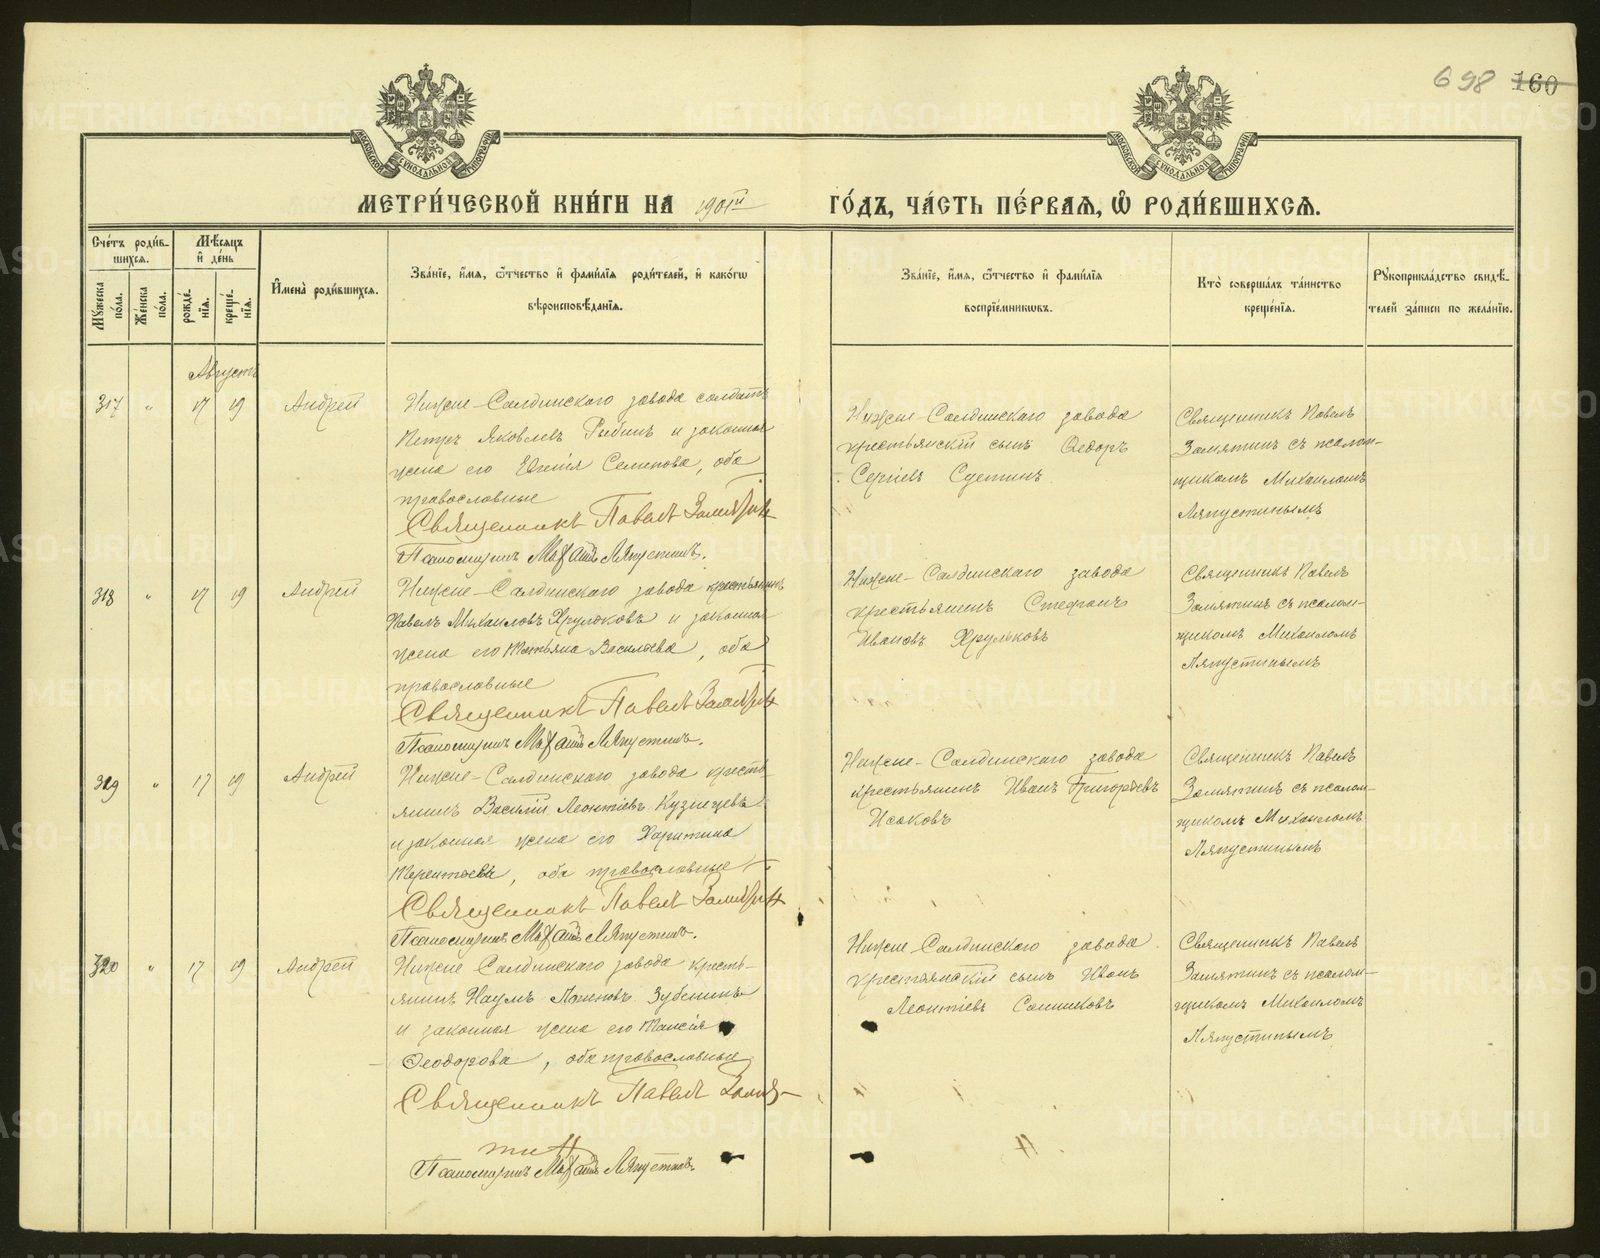 698 160
МЕТРИ́ЧЕСКОЙ КНИ́ГИ НА 1901й ГО́ДЪ, ЧА́СТЬ ПЕ́РВАЯ, Ѽ РОДИ́ВШИХСЯ.
Сче́тъ роди́в-
шихся.
Мꙋ́жеска по́ла.
Же́нска по́ла.
Мѣ́сяцъ
и҆ де́нь
рожде́-
нїѧ.
креще́-
нїѧ.
И҆мена̀ роди́вшихся.
Зва́нїе, и҆́мя, ѻ҆́тчество и҆ фами́лїя роди́телей, и҆ како́гѡ
вѣроисповѣ́данїя.
Зва́нїе, и҆́мя, ѻ҆́тчество и҆ фами́лїя
воспрїе́мникѡвъ.
Кто̀ соверша́лъ та́инство
креще́нїя.
Рꙋкоприкла́дство свидѣ́-
телей за́писи по жела́нїю.
Августъ
317 " 17 19 Андрей
Нижне-Салдинскаго завода солдатъ
Петръ Яковлевъ Рыбинъ и законная
жена его Евгенія Семенова, оба
православные
Священникъ Павелъ Замятин
Псаломщикъ Михаилъ Ляпустинъ.
Нижне-Салдинскаго завода
крестьянскій сынъ Ѳедоръ
Сергіевъ
Священникъ Павелъ
Замятинъ съ псалом-
щикомъ Михаиломъ
Ляпустинымъ
318 " 17 19 Андрей
Нижне-Салдинскаго завода крестьянинъ
Павелъ Михаиловъ Хрульковъ и законная
жена его Татьяна Васильева, оба
православные
Священникъ Павелъ Замятин
Псаломщикъ Михаилъ Ляпустинъ.
Нижне-Салдинскаго завода
крестьянинъ Стефанъ
Ивановъ Хрульковъ
Священникъ Павелъ
Замятинъ съ псалом-
щикомъ Михаиломъ
Ляпустинымъ
319 " 17 19 Андрей
Нижне-Салдинскаго завода кресть-
янинъ Василій Леонтіевъ Кузнецевъ
и законная жена его Харитина
Терентьева, оба православные
Священникъ Павелъ Замятин
Псаломщикъ Михаилъ Ляпустинъ.
Нижне-Салдинскаго завода
крестьянинъ Иванъ Григорьевъ
Исаковъ
Священникъ Павелъ
Замятинъ съ псалом-
щикомъ Михаиломъ
Ляпустинымъ
320 " 17 19 Андрей
Нижне Салдинскаго завода кресть-
янинъ Наумъ Зубенинъ
и законная жена его Таисія
Ѳеодорова, оба православные
Священникъ Павелъ Замя-
тин
Псаломщикъ Михаилъ Ляпустинъ.
Нижне Салдинскаго завода
крестьянскій сынъ Иванъ
Леонтіевъ Санниковъ
Священникъ Павелъ
Замятинъ съ псалом-
щикомъ Михаиломъ
Ляпустинымъ